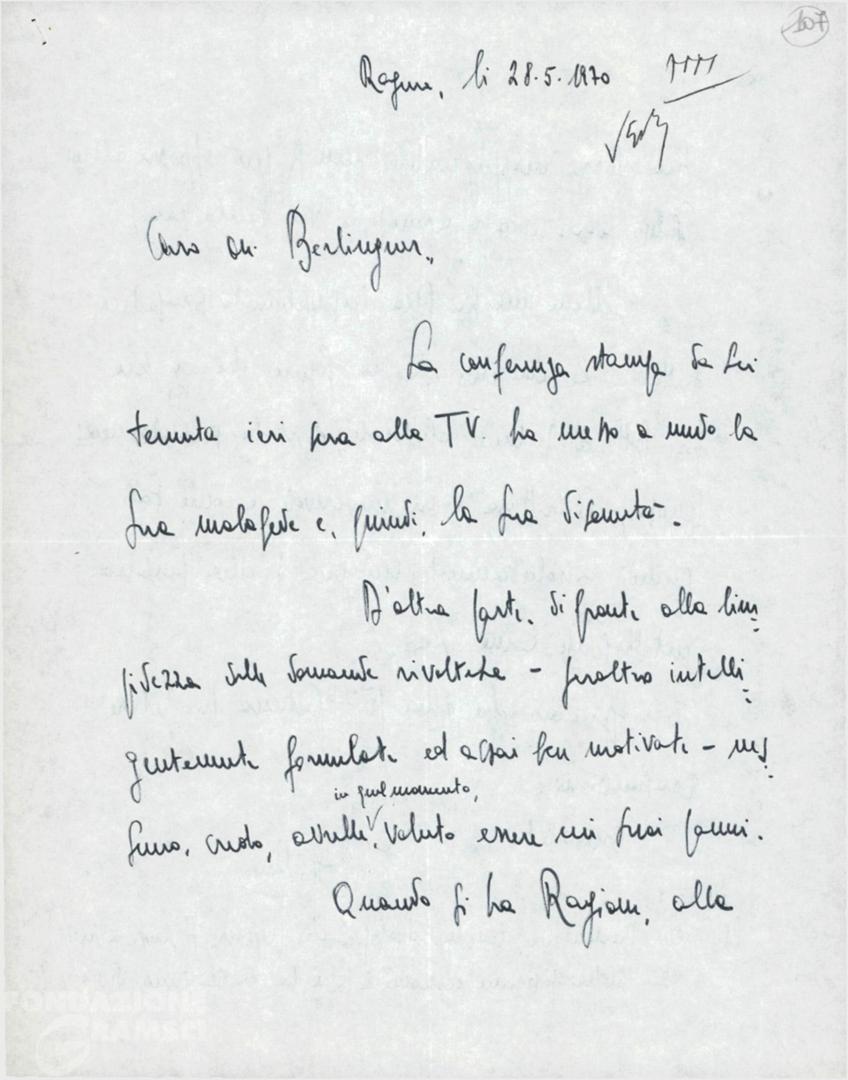 107
Ragusa, lì 28.5.1970
Caro on. Berlinguer,
La conferenza stampa da Lei
tenuta ieri sera alla TV. ha messo a nudo la
Sua malafede e, quindi, la Sua disonestà.
D'altra parte, di fronte alla lim
pidezza delle domande rivolteLe - peraltro intelli
gentemente formulate ed assai ben motivate - nes
suno, credo, avrebbe, in quel momento, voluto essere nei Suoi panni.
Quando si ha Ragione, alla
FONDAZIONE
GRAMSCI